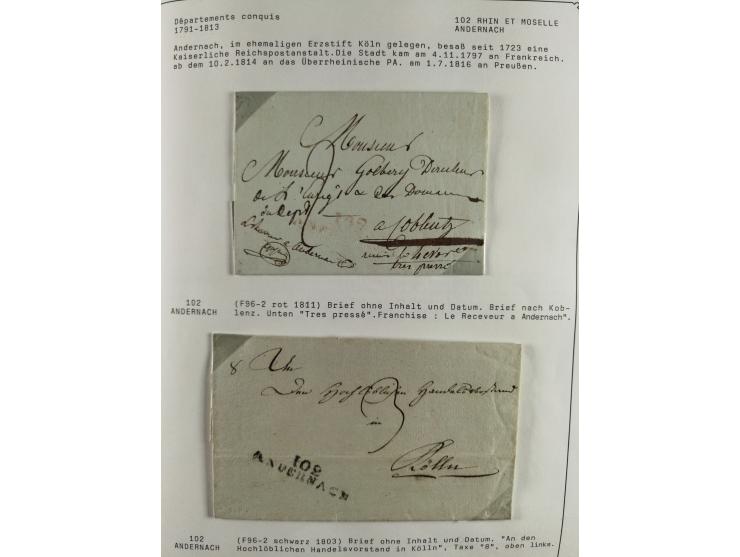 Départements conquis
1791-1813
102 RHIN ET MOSELLE
ANDERNACH
Andernach, im ehemaligen Erzstift Köln gelegen, besaß seit 1723 eine
Kaiserliche Reichspostanstalt.Die Stadt kam am 4.11.1797 an Frankreich.
ab dem 10.2.1814 an das Überrheinische PA. am 1.7.1816 an Preußen.
Monsieur
Monsieur Golbery Directeur
de l'
Domain
du Dept
102
a Coblentz
Andernach
tres pressé
102
ANDERNACH
(F96-2 rot 1811) Brief ohne Inhalt und Datum. Brief nach Kob-
lenz. Unten "Tres pressé".Franchise : Le Receveur a Andernach".
8 An
Den Hochlöblichen Handelsvorstand
in
Kölln
102
ANDERNACH
102
ANDERNACH
(F96-2 schwarz 1803) Brief ohne Inhalt und Datum. "An den
Hochlöblichen Handelsvorstand in Kölln", Taxe "8". oben links.